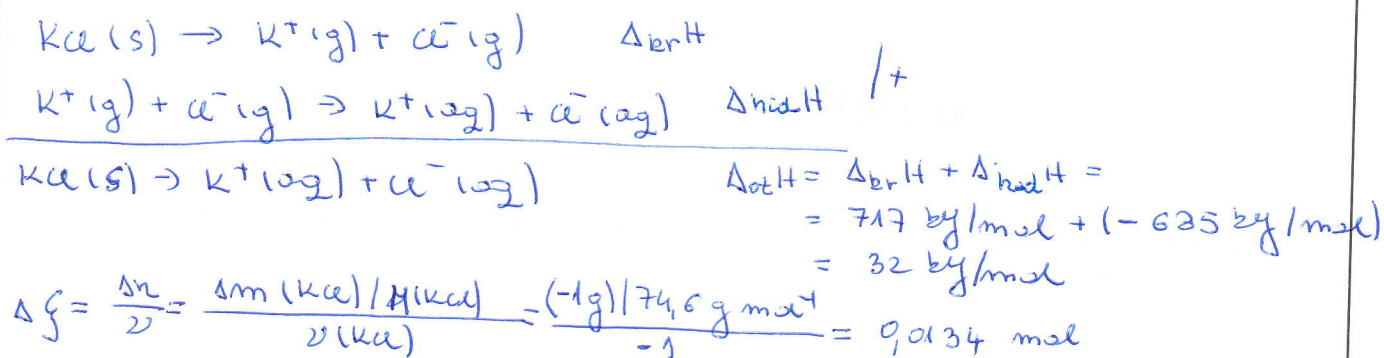 KCl (s) → K⁺(g) + Cl⁻(g) ΔkrH
K⁺(g) + Cl⁻(g) → K⁺(aq) + Cl⁻(aq) ΔhidH /+
KCl(s) → K⁺(aq) + Cl⁻(aq) ΔotH = ΔkrH + ΔhidH =
= 717 kJ/mol + (-685 kJ/mol)
= 32 kJ/mol
Δξ = Δn/ν = (Δm(KCl)/M(KCl))/ν(KCl) = ((-1g)/74,6 g mol⁻¹)/-1 = 0,0134 mol